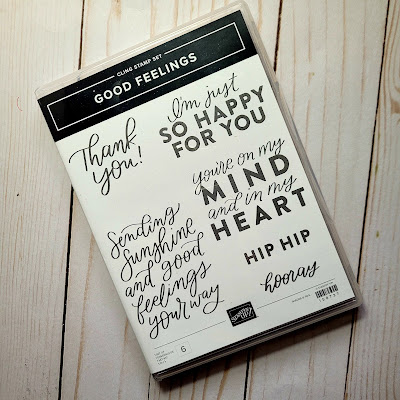 CLING STAMP SET
GOOD FEELINGS
Thank
you!
I'm just
SO HAPPY
FOR YOU
you're on my
MIND
and in my
HEART
Sending
Sunshine
and good
feelings
your way
HIP HIP
hooray
6
STAMPIN' UP!